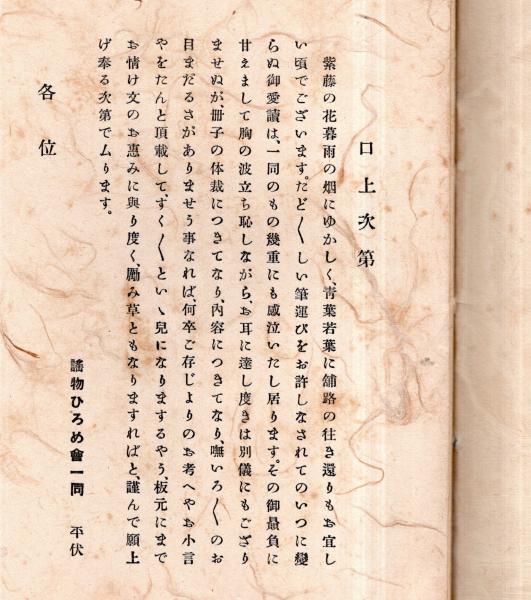 口上次第
紫藤の花暮雨の烟にゆかしく、青葉若葉に舖路の往き還りもお宜し
い頃でございます。たど〱しい筆運びをお許しなされてのいつに變
らぬ御愛讀は、一同のもの幾重にも感泣いたし居ります。その御贔負に
甘えまして胸の波立ち恥しながら、お耳に達し度きは別儀にもござり
ませぬが、冊子の体裁につきてなり、内容につきてなり、嘸いろ〱のお
目まだるさがありませう事なれば、何卒ご存じよりのお考へやお小言
やをたんと頂戴して、ずく〱といゝ兒になりまするやう、板元にまで
お情け文のお恵みに與り度く、勵み草ともなりますればと、謹んで願上
げ奉る次第でムります。
謠物ひろめ會一同　平伏
各位